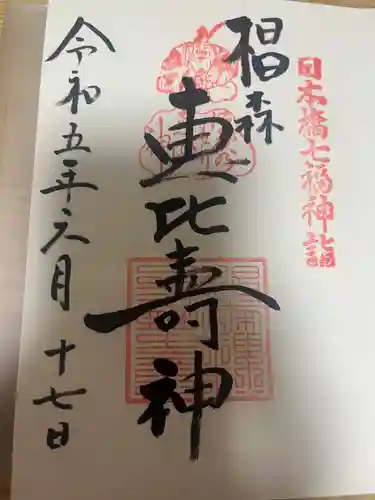 日本橋七福神詣
椙森
恵比壽神
令和五年六月十七日